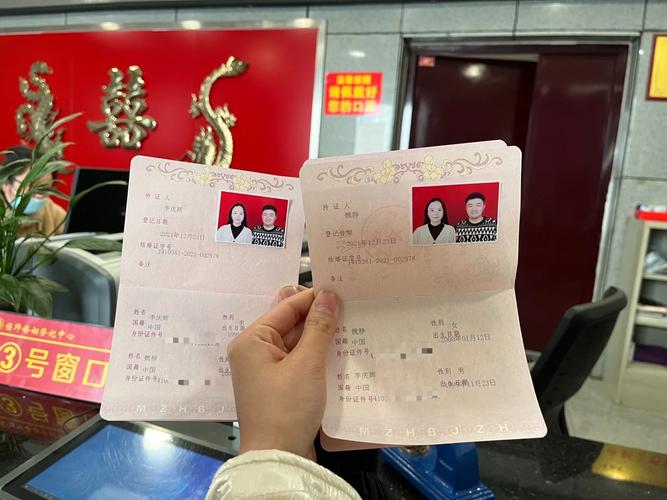 囍
请佩戴好
您的口罩
持 证 人
李庆辉
登记日期
2021年12月23日
结婚证字号
J410381-2021-002978
备注
姓名 李庆辉
性别 男
国籍 中国
出生日期
身份证件号
姓名 魏静
国籍 中国
身份证件号
持 证 人
魏静
登记日期
2021年12月23日
结婚证字号
J410381-2021-002978
备注
姓名 魏静
性别 女
国籍 中国
出生日期
身份证件号
姓名 李庆辉
性别 男
国籍 中国
出生日期
身份证件号
M Z H B J Z H
M Z H B J Z H
婚姻登记中心
3号窗口